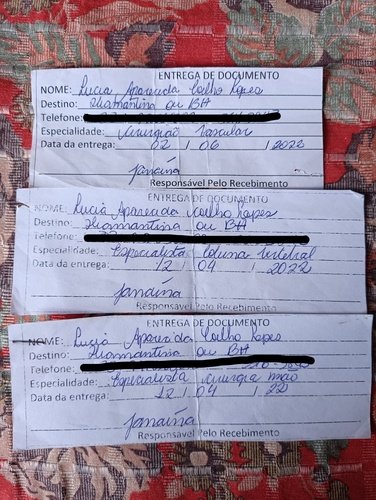 ENTREGA DE DOCUMENTO
NOME: Lucia Aparecida Coelho Lopes
Destino: Diamantina ou BH
Telefone:
Especialidade: Cirurgião Vascular
Data da entrega: 02 / 06 / 2022
Janaína
Responsável Pelo Recebimento
ENTREGA DE DOCUMENTO
NOME: Lucia Aparecida Coelho Lopes
Destino: Diamantina ou BH
Telefone:
Especialidade: Especialista Coluna Vertebral
Data da entrega: 12 / 04 / 2022
Janaína
Responsável Pelo Recebimento
ENTREGA DE DOCUMENTO
NOME: Lucia Aparecida Coelho Lopes
Destino: Diamantina ou BH
Telefone:
Especialidade: Especialista cirurgia mão
Data da entrega: 12 / 04 / 22
Janaína
Responsável Pelo Recebimento